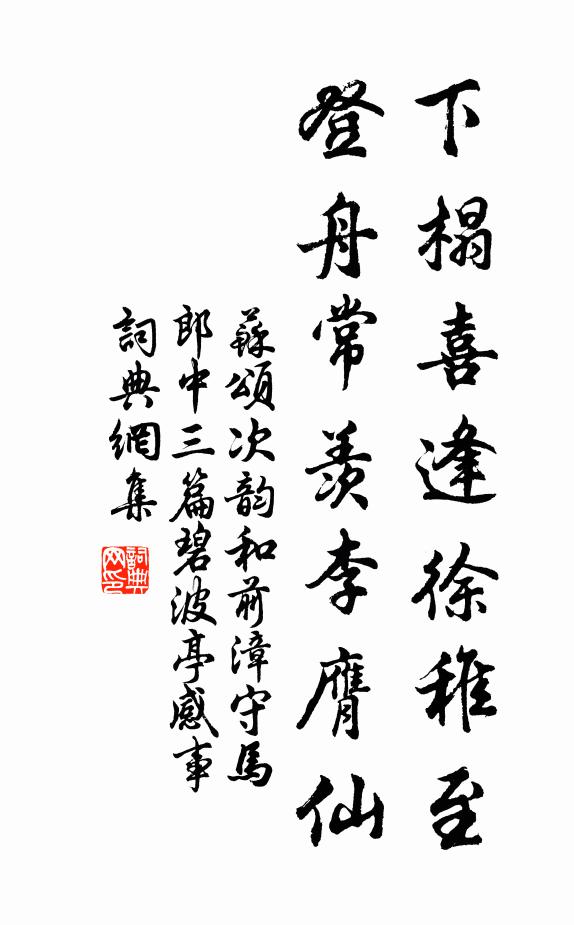 下榻喜逢徐稚至
登舟常羨李膺仙
蘇頌次韵和前漳守馬
郎中三篇碧波亭感事
詞典網集
詞典網印